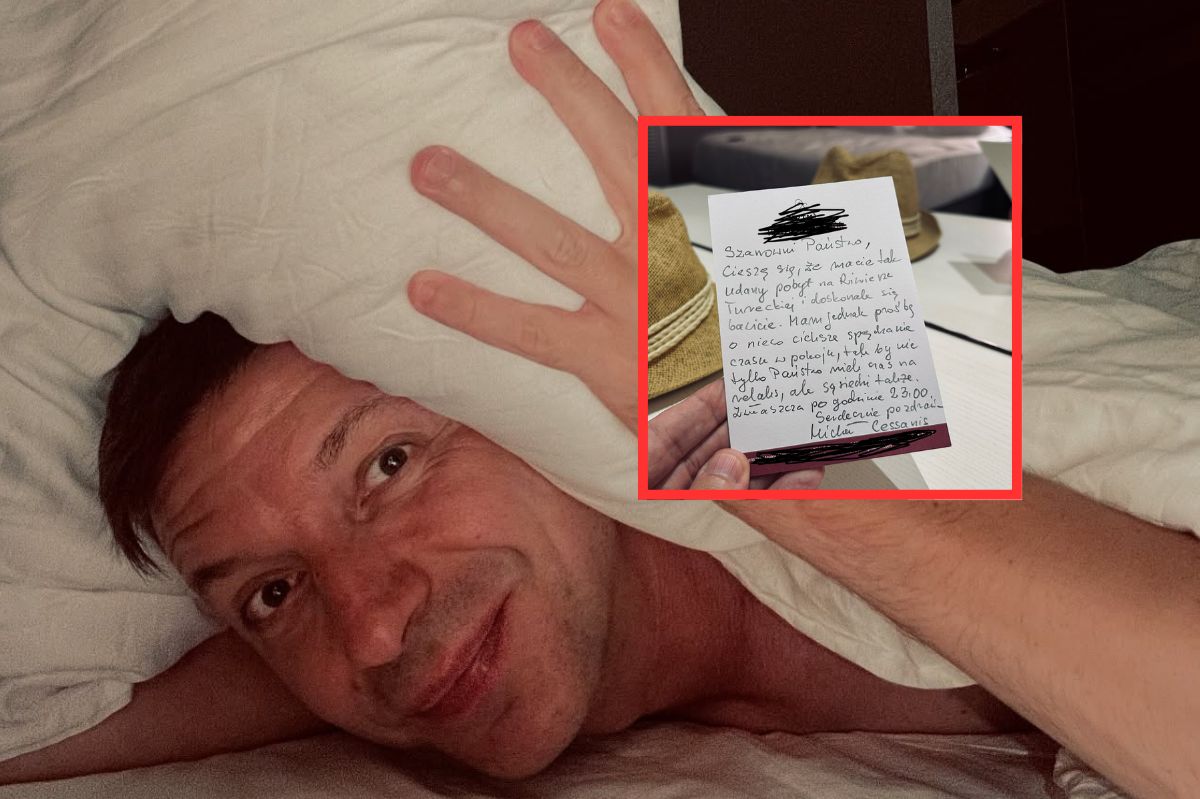 Szanowni Państwo,
Cieszę się, że macie tak
udany pobyt na Riwierze
Tureckiej i doskonale się
bawicie. Mam jednak prośbę
o nieco cichsze spędzanie
czasu w pokoju, tak by nie
tylko Państwo mieli czas na
relaks, ale sąsiedzi także.
Zwłaszcza po godzinie 23:00.
Serdecznie pozdrawiam
Michał Cessanis